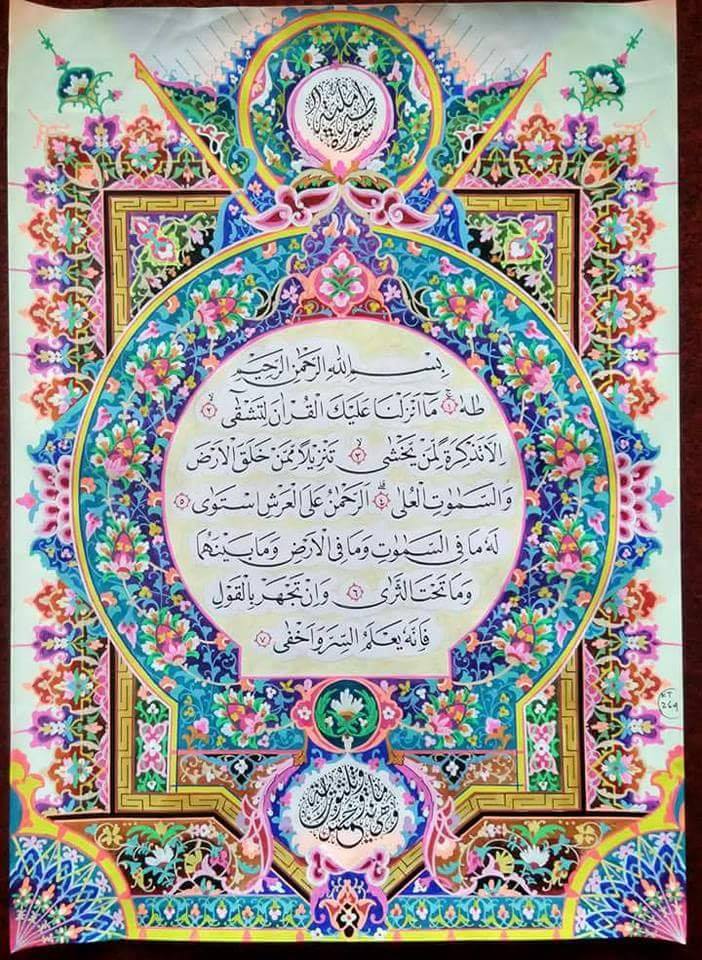 سورة طه مكية
بِسْمِ اللهِ الرَّحْمٰنِ الرَّحِيْمِ
طٰهٰ ۚ ﴿١﴾ مَآ اَنْزَلْنَا عَلَيْكَ الْقُرْاٰنَ لِتَشْقٰٓى ﴿٢﴾
اِلَّا تَذْكِرَةً لِّمَنْ يَّخْشٰى ﴿٣﴾ تَنْزِيْلًا مِّمَّنْ خَلَقَ الْاَرْضَ
وَالسَّمٰوٰتِ الْعُلٰى ﴿٤﴾ اَلرَّحْمٰنُ عَلَى الْعَرْشِ اسْتَوٰى ﴿٥﴾
لَهٗ مَا فِى السَّمٰوٰتِ وَمَا فِى الْاَرْضِ وَمَا بَيْنَهُمَا
وَمَا تَحْتَ الثَّرٰى ﴿٦﴾ وَاِنْ تَجْهَرْ بِالْقَوْلِ
فَاِنَّهٗ يَعْلَمُ السِّرَّ وَاَخْفٰى ﴿٧﴾
KT
269
وهي مائة وخمس وثلثون اية